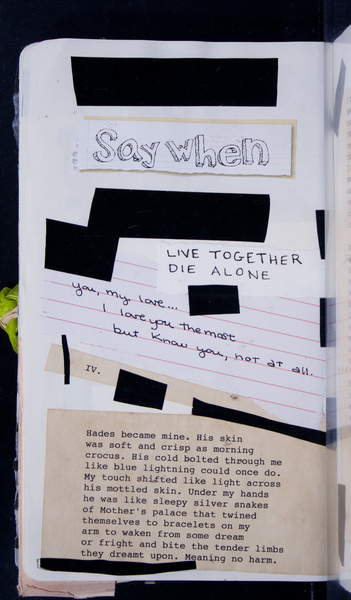 Say when
LIVE TOGETHER
DIE ALONE
you, my love...
I love you the most
but know you, not at all.
IV.
Hades became mine. His skin
was soft and crisp as morning
crocus. His cold bolted through me
like blue lightning could once do.
My touch shifted like light across
his mottled skin. Under my hands
he was like sleepy silver snakes
of Mother's palace that twined
themselves to bracelets on my
arm to waken from some dream
or fright and bite the tender limbs
they dreamt upon. Meaning no harm.